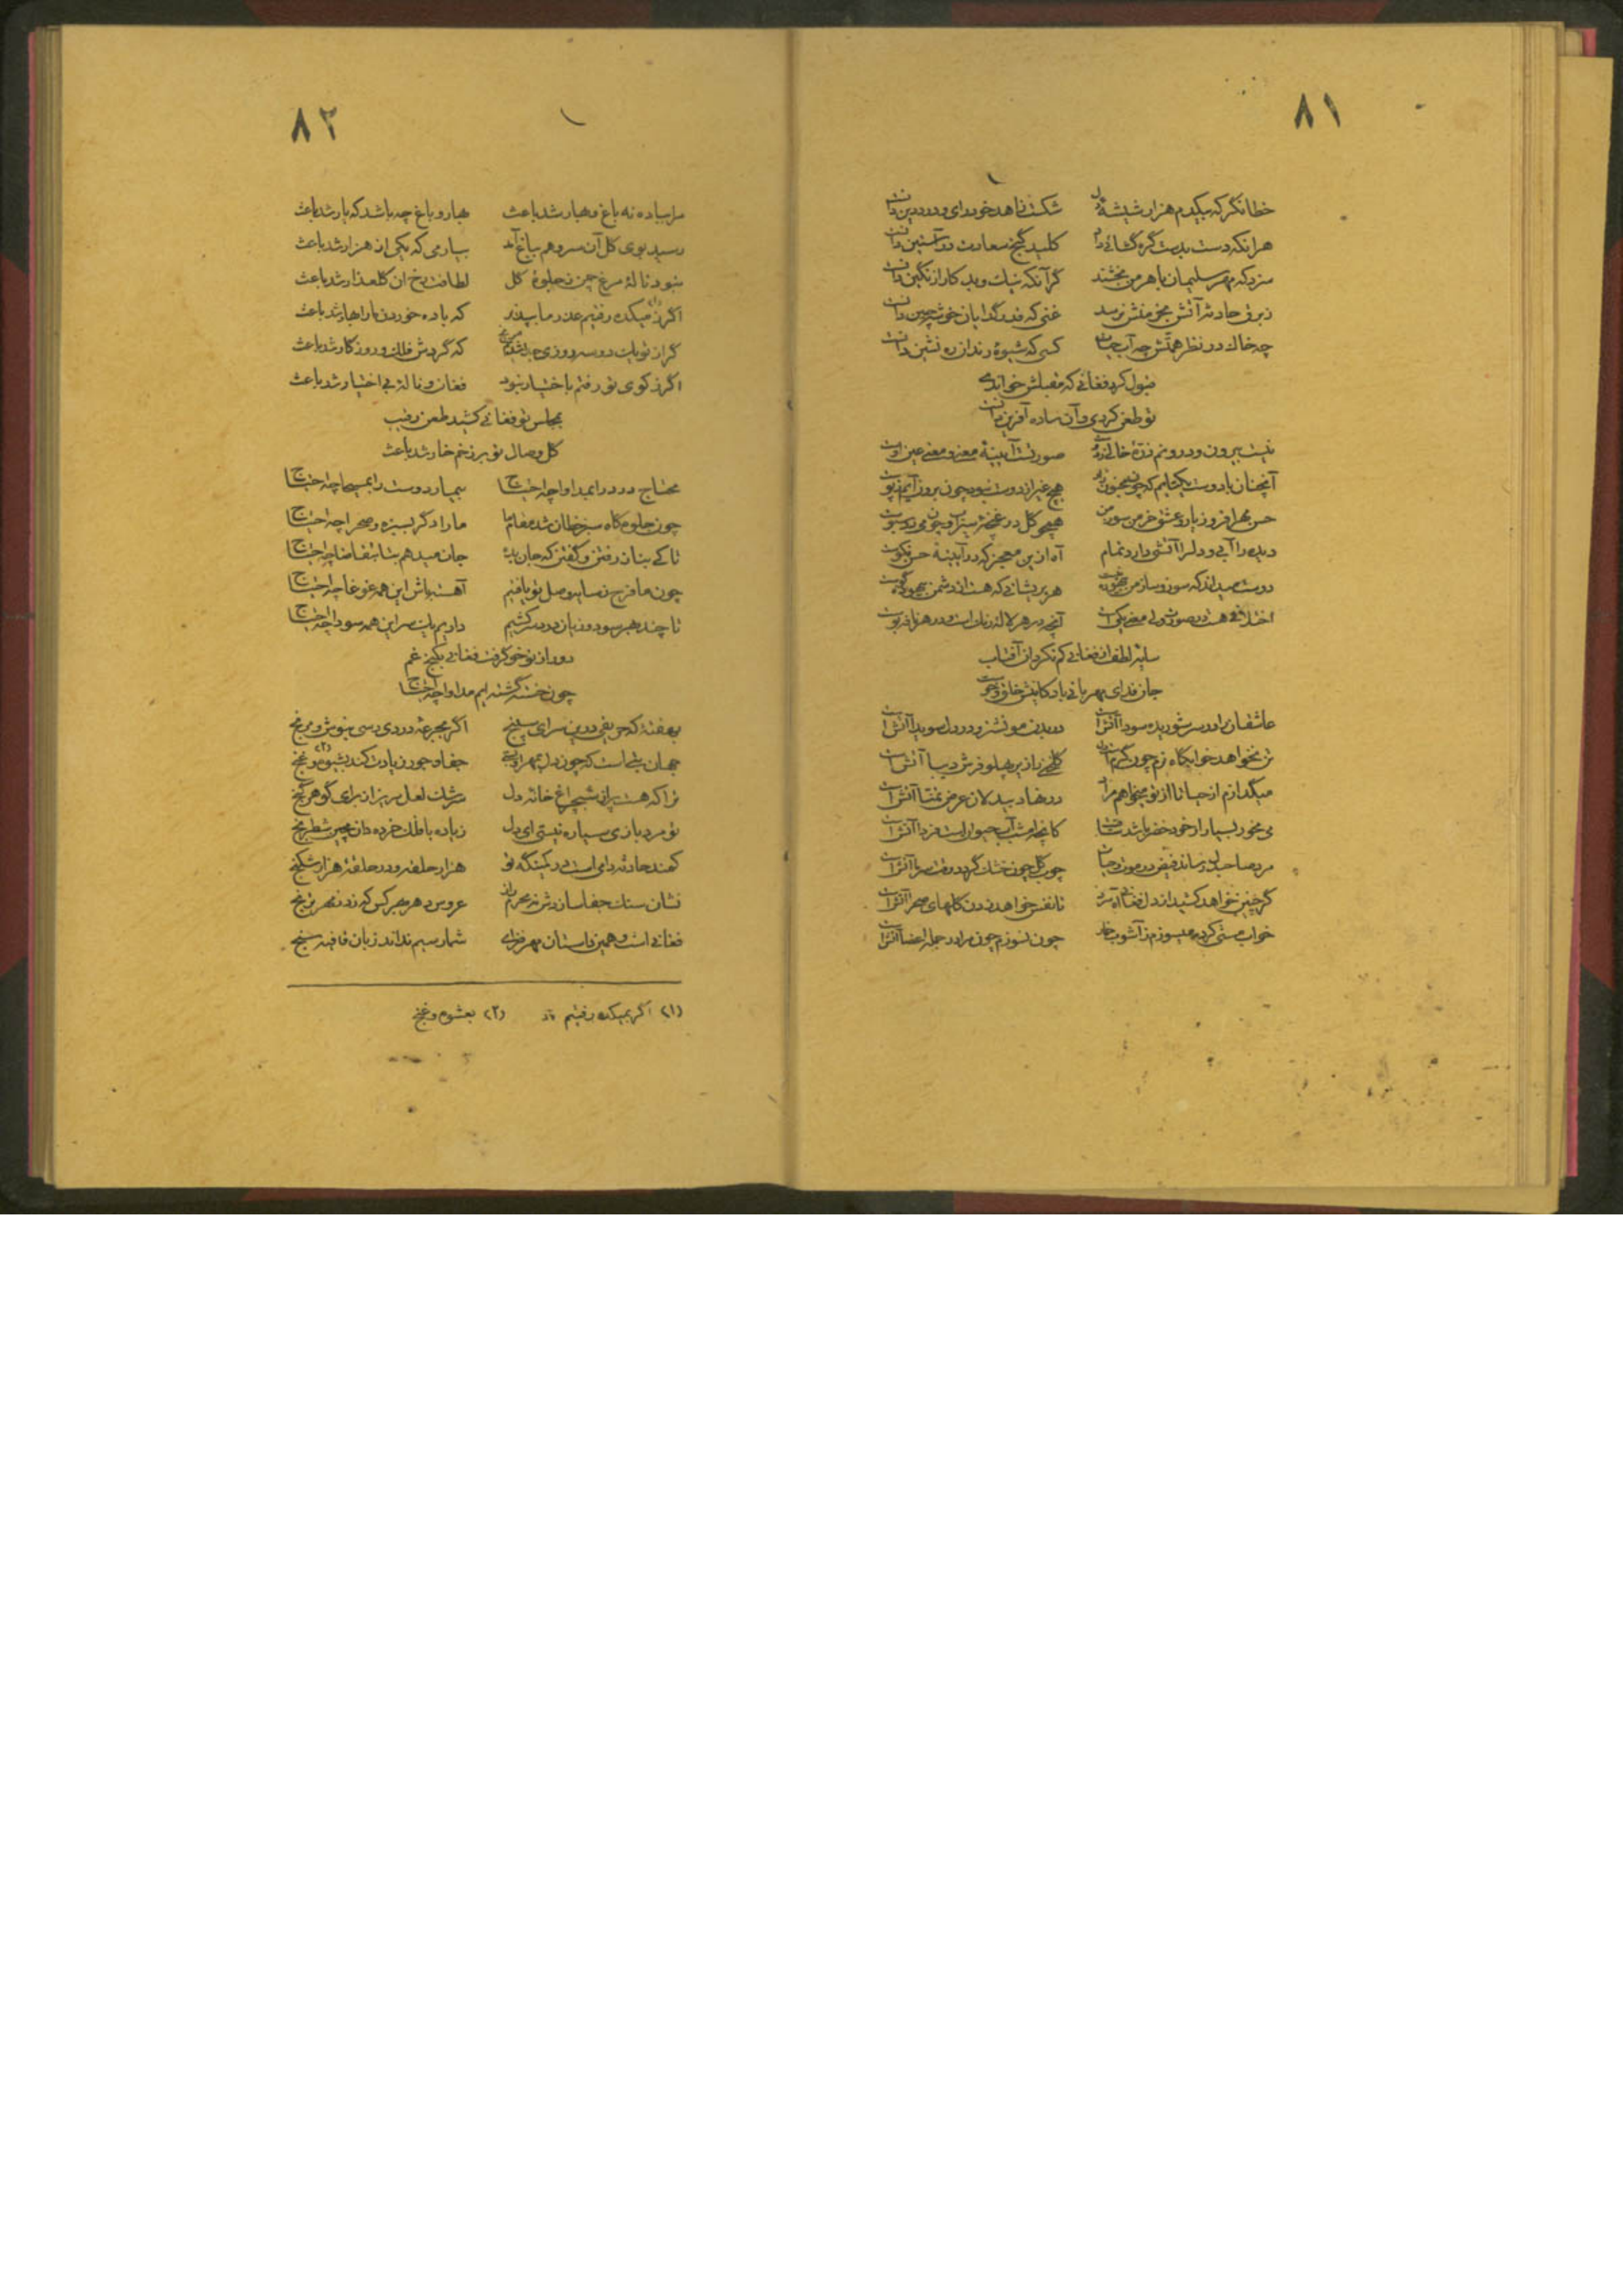 ۸۱
خطا نگر که بیکدم هزار شیشهٔ دل شکست زاهد خودرای و درد دین دانست
هر آنکه دست بدست گره گشائی داد کلید گنج سعادت در آستین دانست
سزد که مهر سلیمان باهرمن بخشند گر آنکه نیک و بد کار از نگین دانست
ز برق حادثه آتش بخرمنش نرسد غنی که قدر گدایان خوشه چین دانست
چه خاک در نظر همتش چه آب حیات کسی که شیوهٔ رندان ره نشین دانست
قبول کرد فغانی که مقبلش خواندی
تو طعن کردی و آن ساده آفرین دانست
نیست بیرون و درونم ذرهٔ خالی ز دوست صورتست آیینهٔ معنی و معنی عین اوست
آنچنان با دوست یکتایم که چون مجنون زار هیچ غیر از دوست نبود چون برون آیم ز پوست
حسن مهر افروز یار و عشق خرمن سوز من همچو گل در غنچهٔ سیراب و چون می در سبوست
دیده را آبی و دل را آتشی دارد تمام آه ازین معجز که در آیینهٔ حسن نکوست
دوست میداند که سوز و ساز من بیهوده نیست هر پریشانی که هست از دشمن بیهوده گوست
اختلافی هست در صورت ولی معنی یکیست آنچه در هر لاله رنگ است و در هر نافه بوست
سایهٔ لطف از فغانی کم نکرد آن آفتاب
جان فدای مهربانی باد کاینش خلق و خوست
عاشقان را در سر شوریده سودا آتش است در بدن مو نشتر و در دل سویدا آتش است
تن نخواهد خوابگاه نرم چون دل گرم شد گلخنی را زیر پهلو فرش دیبا آتش است
میگدازم از حیا تا از تو میخواهم مراد در نهاد بیدلان عرض تمنا آتش است
می مخور بسیار ار خود خضر باشد ساقیت کانچه امشب آب حیوان است فردا آتش است
مرد صاحبدل رساند فیض در موت و حیات چوب گل چون خشک گردد وقت سرما آتش است
گر چنین خواهد کشید از دل فغانی آه گرم تا نفس خواهد زدن گلهای صحرا آتش است
خواب مستی کرده میسوزم ز آشوب خمار چون نسوزم چون مرا در جمله اعضا آتش است
۸۲
مرا بباده نه باغ و بهار شد باعث بهار و باغ چه باشد که یار شد باعث
رسید بوی گل آن سرو هم بباغ آمد بیار می که یکی از هزار شد باعث
نبود نالهٔ مرغ چمن ز جلوهٔ گل لطافت رخ آن گلعذار شد باعث
اگر ز میکده(۱) رفتیم عذر ما بپذیر که باده خوردن ما را بهار شد باعث
گر از تو یک دو سه روزی جدا شدم مرنج که گردش فلک و روزگار شد باعث
اگر ز کوی تو رفتم باختیار نبود فغان و نالهٔ بی اختیار شد باعث
بمجلس تو فغانی کشید طعن رقیب
گل وصال تو بر زخم خار شد باعث
محتاج درد را بمداوا چه احتیاج بیمار دوست را بمسیحا چه احتیاج
چون جلوه گاه سبز خطان شد مقام ما ما را دگر بسبزه و صحرا چه احتیاج
تا کی بناز رفتن و گفتن که جان بده جان میدهم بیا بتقاضا چه احتیاج
چون ما فرح ز سایهٔ وصل تو یافتیم آهسته باش این همه غوغا چه احتیاج
تا چند بهر سود و زیان دردسر کشیم داریم یک سر این همه سودا چه احتیاج
دور از تو خو گرفت فغانی بکنج غم
چون خسته گشته ایم مداوا چه احتیاج
بهفتهٔ که حریفی درین سرای سپنج اگر بجرعهٔ دردی رسی بنوش و مرنج
جهان بتی است که چون دل بمهر او بستی جفا و جور زیادت کند بشیوه و غنج(۲)
ترا که هست پر از شبچراغ خانهٔ دل سرشک لعل مریز از برای گوهر گنج
تو مرد بازی سیاره نیستی ای دل زیاده با فلک خرده دان مچین شطرنج
کمند حادثه دامی است در کمینگه تو هزار حلقه و در حلقهٔ هزار شکنج
نشان سنگ جفا سازدش نه محرم راز عروس دهر بهر کس که زد ز مهر ترنج
فغانی است و همین داستان مهر و وفا شمار سیم نداند زبان قافیه سنج
(۱) اگر بمیکده رفتیم (۲) بعشوه و غنج